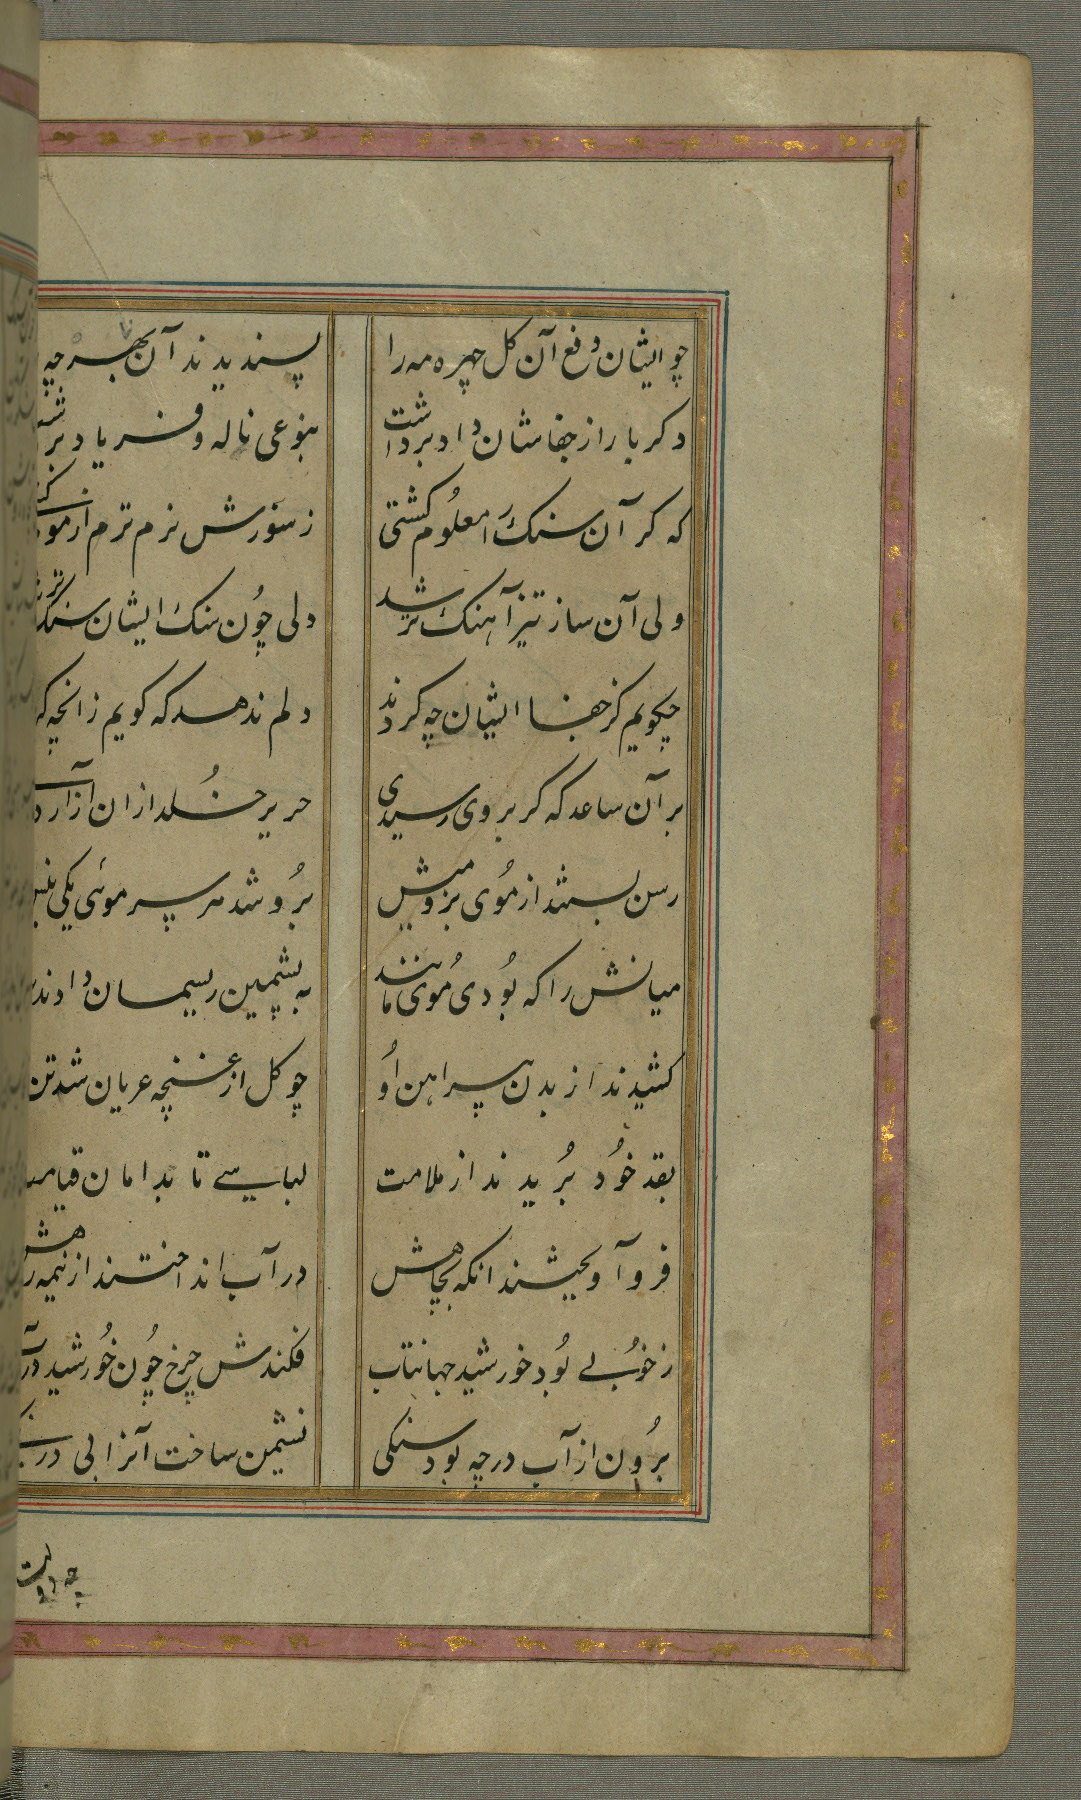 چو ایشان دفع آن کل چهره مه را پسندیدند آن بهر چه
دکر بار از جفاشان داد برداشت بنوعی ناله و فریاد برداشت
که کر آن سنک را معلوم کشتی ز سوزش نرم نرم از موم
ولی آن ساز تیز آهنک تر شد دلی چون سنک ایشان سنک تر شد
چکویم کز جفا ایشان چه کردند دلم ندهد که کویم زانچه کردند
بر آن ساعد که کر بر وی رسیدی حریر خلد از ان آزار
رسن بستند از موی بز و میش برو شد هر سر موئی یکی نیش
میانش را که بودی موی مانند به پشمین ریسمان دادند
کشیدند از بدن پیراهن او چو کل از غنچه عریان شد تن
بقد خود بریدند از ملامت لباسی تا بدامان قیامت
فرو آویختند انکه بچاهش در آب انداختند از نیمه راهش
ز خوبی بود خورشید جهانتاب فکندش چرخ چون خورشید در آب
برون از آب در چه بود سنکی نشیمن ساخت آنرا بی درنکی
چه دولت